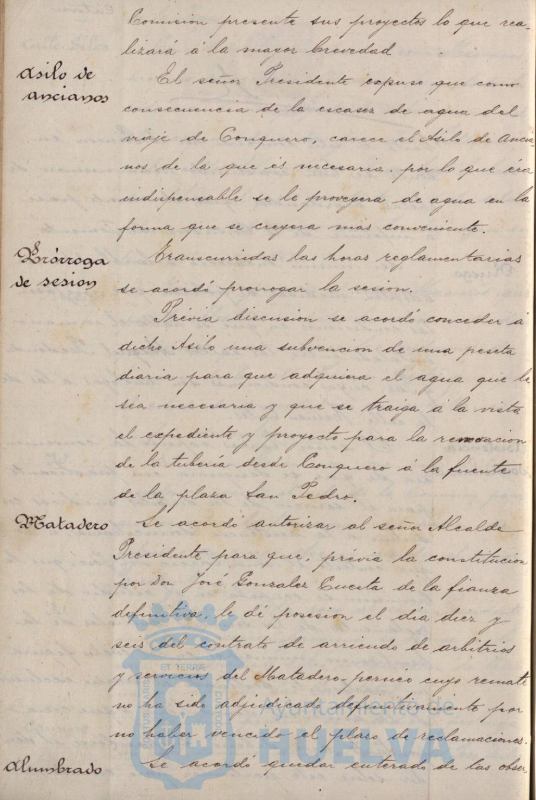 Comision presente sus proyectos lo que rea-
lizará á la mayor brevedad
Asilo de
ancianos
El señor Presidente expuso que como
consecuencia de la escasez de agua del
viaje de Conquero, carece el Asilo de Ancia-
nos de la que és necesaria, por lo que éra
indispensable se le proveyera de agua en la
forma que se creyera más conveniente.
Prórroga
de sesion
Transcurridas las horas reglamentarias
se acordó prorrogar la sesion.
Prévia discusion se acordó conceder á
dicho Asilo una subvencion de una peseta
diaria para que adquiera el agua que le
séa necesaria y que se traiga á la vista
el expediente y proyecto para la renovacion
de la tubería desde Conquero á la fuente
de la plaza San Pedro.
Matadero
Se acordó autorizar al señor Alcalde
Presidente para que, prévia la constitucion
por Don José Gonzalez Cuesta de la fianza
definitiva, le dé posesion el día diez y
seis del contrato de arriendo de arbitrios
y servicios del Matadero-pernico cuyo remate
no ha sido adjudicado definitivamente por
no haber vencido el plazo de reclamaciones.
Alumbrado
Se acordó quedar enterado de las obser
ET TERRÆ
Ayuntamiento de
HUELVA